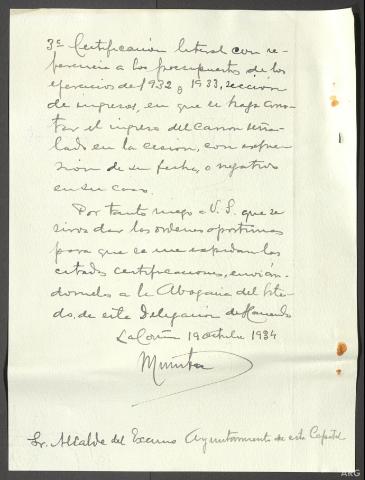 3º Certificación literal con re-
ferencia a los presupuestos de los
ejercicios de 1932 y 1933, sección
de ingresos, en que se haga cons-
tar el ingreso del canon seña-
lado en la cesión, con expre-
sión de su fecha, o negativo
en su caso.
Por tanto ruego a V. S. que se
sirva dar las ordenes oportunas
para que se me expidan las
citadas certificaciones, envián-
domelas a la Abogacia del Esta-
do, de esta Delegación de Hacienda
La Coruña 19 octubre 1934
Sr. Alcalde del Excmo Ayuntamiento de esta Capital
ARG